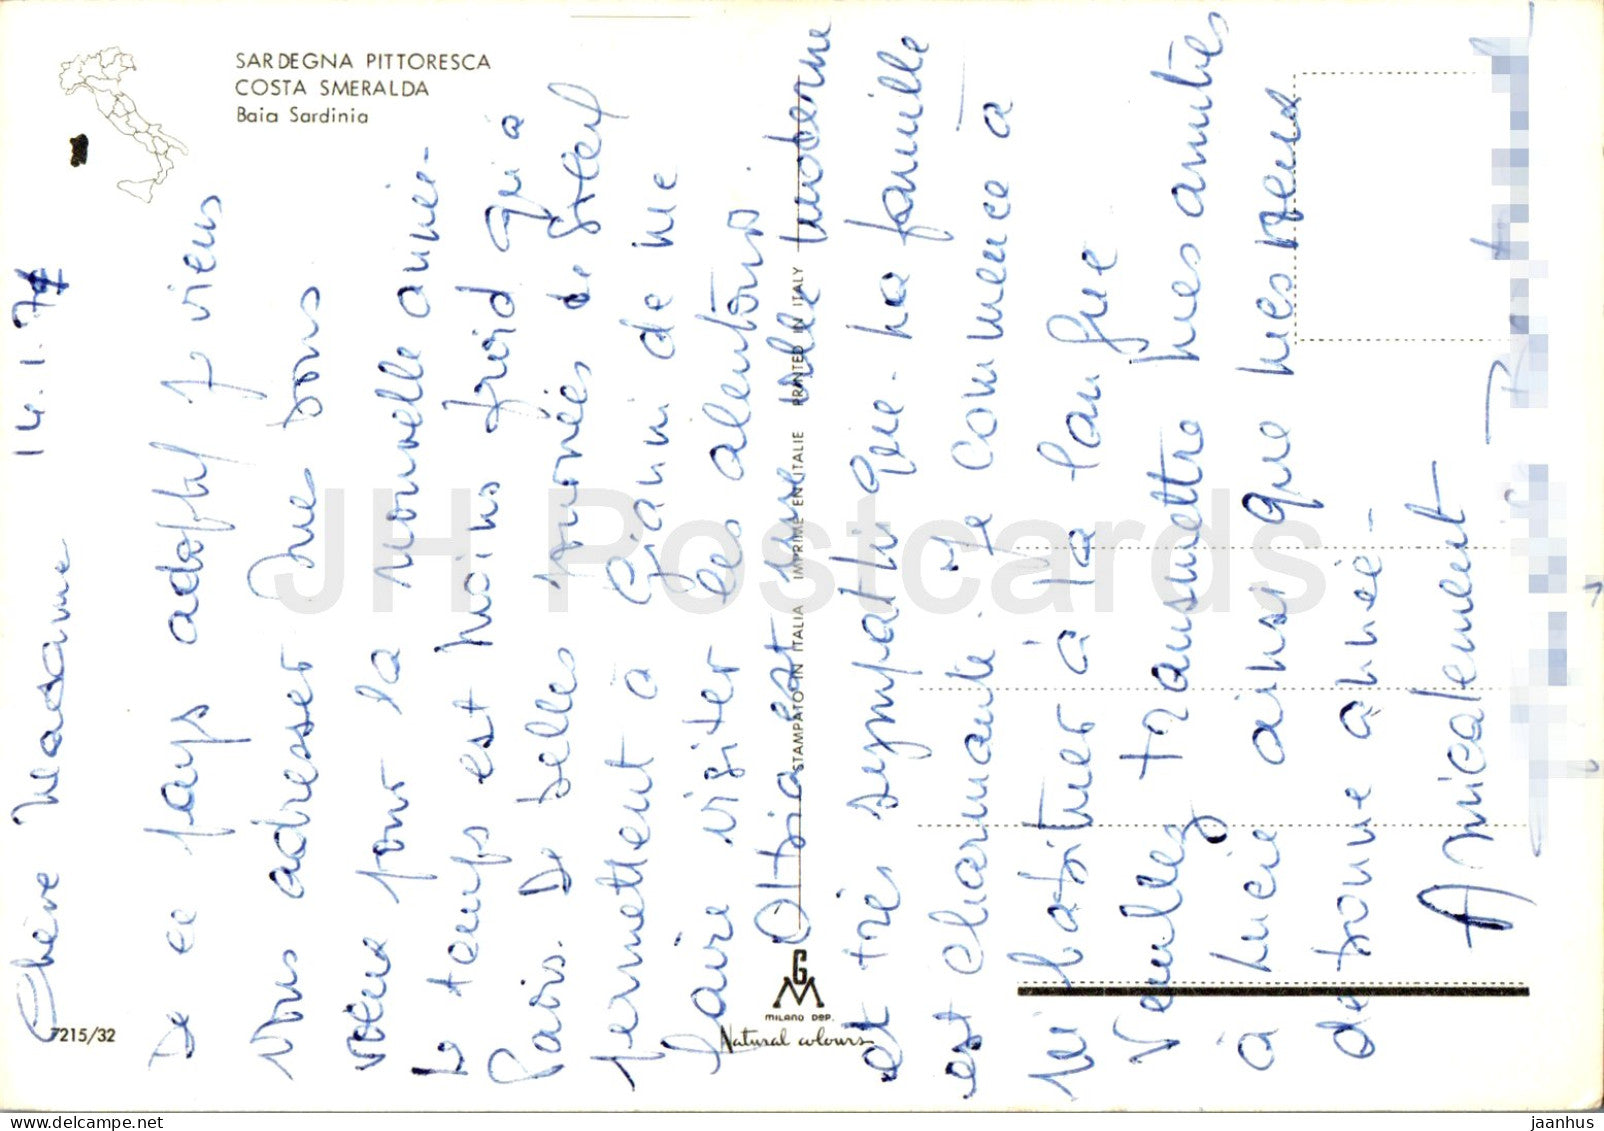 SARDEGNA PITTORESCA
COSTA SMERALDA
Baia Sardinia
7215/32
STAMPATO IN ITALIA IMPRIMÉ EN ITALIE PRINTED IN ITALY
MILANO DEP.
Natural colours
Chère Madame 14.1.74
De ce pays adoptif je viens
vous adresser mes bons
vœux pour la nouvelle année.
Le temps est moins froid qu'à
Paris. De belles journées de soleil
permettent à Gianni de me
faire visiter les alentours.
Olbia est une ville moderne
et très sympathique. Ma famille
est charmante. Je commence à
m'habituer à la langue
Veuillez transmettre mes amitiés
à Lucie ainsi que mes vœux
de bonne année.
Amicalement
JH Postcards
jaanhus